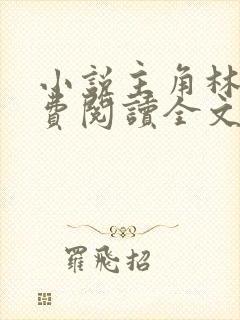 小說主角林
費閱讀全文
羅飛招